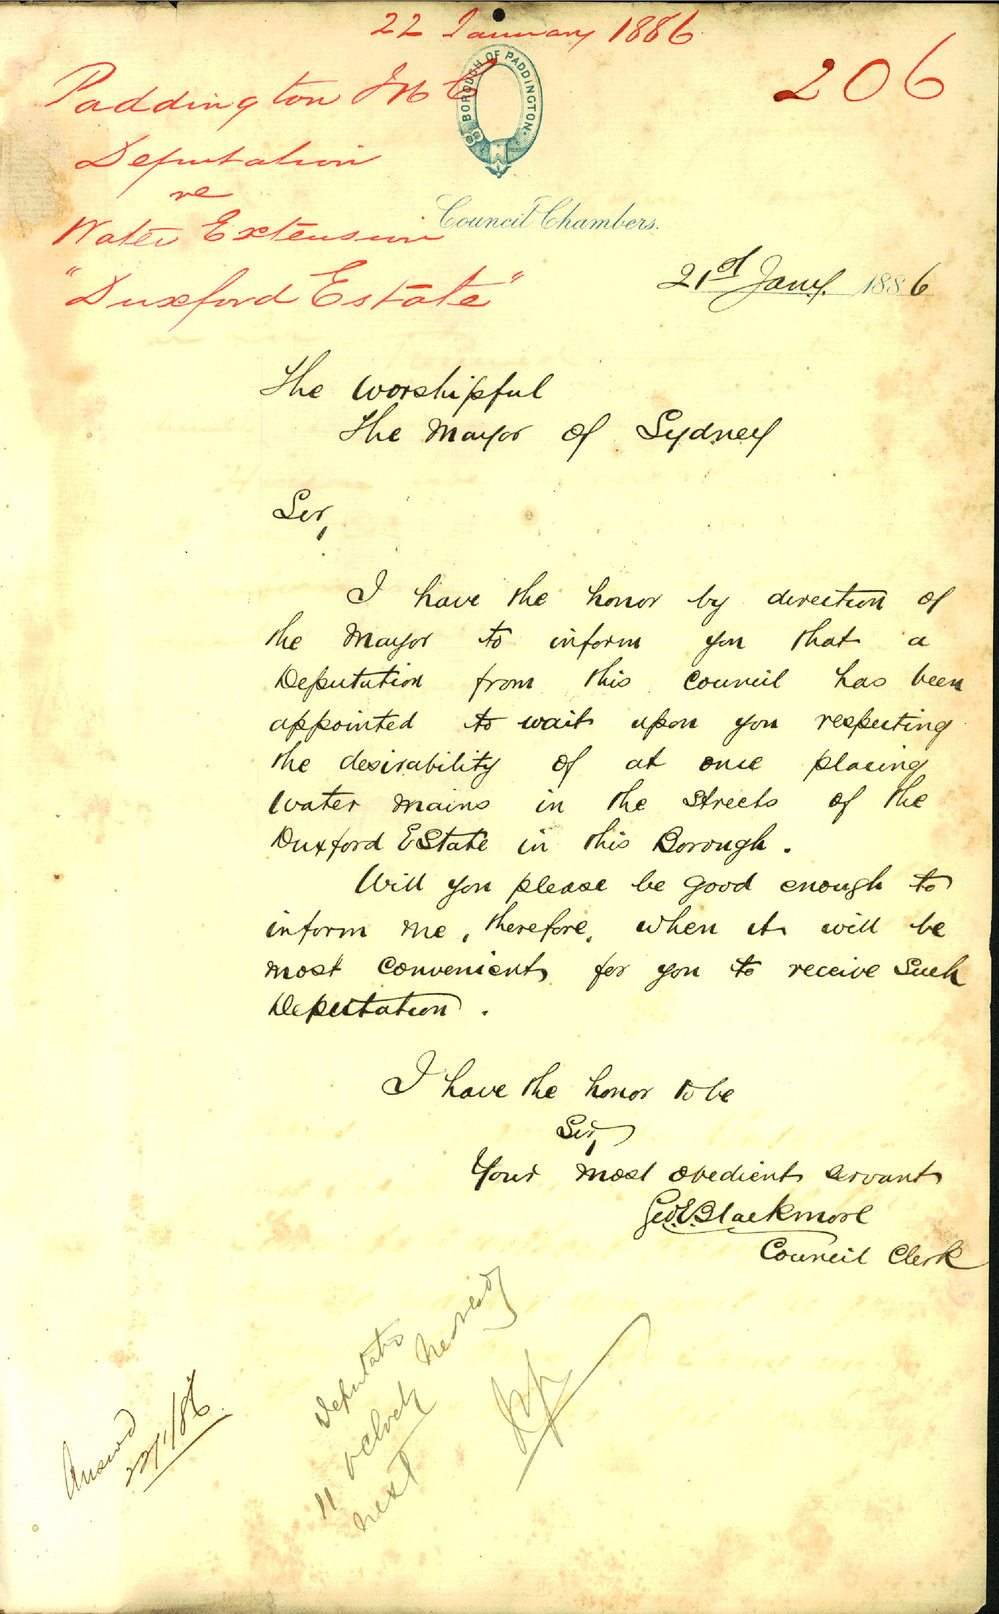 22 January 1886
206
Paddington M C
Deputation
re
Water Extension
"Duxford Estate"
BOROUGH OF PADDINGTON
Council Chambers.
21st Jany. 1886
The Worshipful
The Mayor of Sydney
Sir,
I have the honor by direction of
the Mayor to inform you that a
Deputation from this Council has been
appointed to wait upon you respecting
the desirability of at once placing
Water Mains in the Streets of the
Duxford Estate in this Borough.
Will you please be good enough to
inform me, therefore, when it will be
most convenient for you to receive Such
Deputation.
I have the honor to be
Sir,
Your most obedient servant
Geo. E. Blackmore
Council Clerk
Deputatn
11 oclock
next
Answd
22/1/86